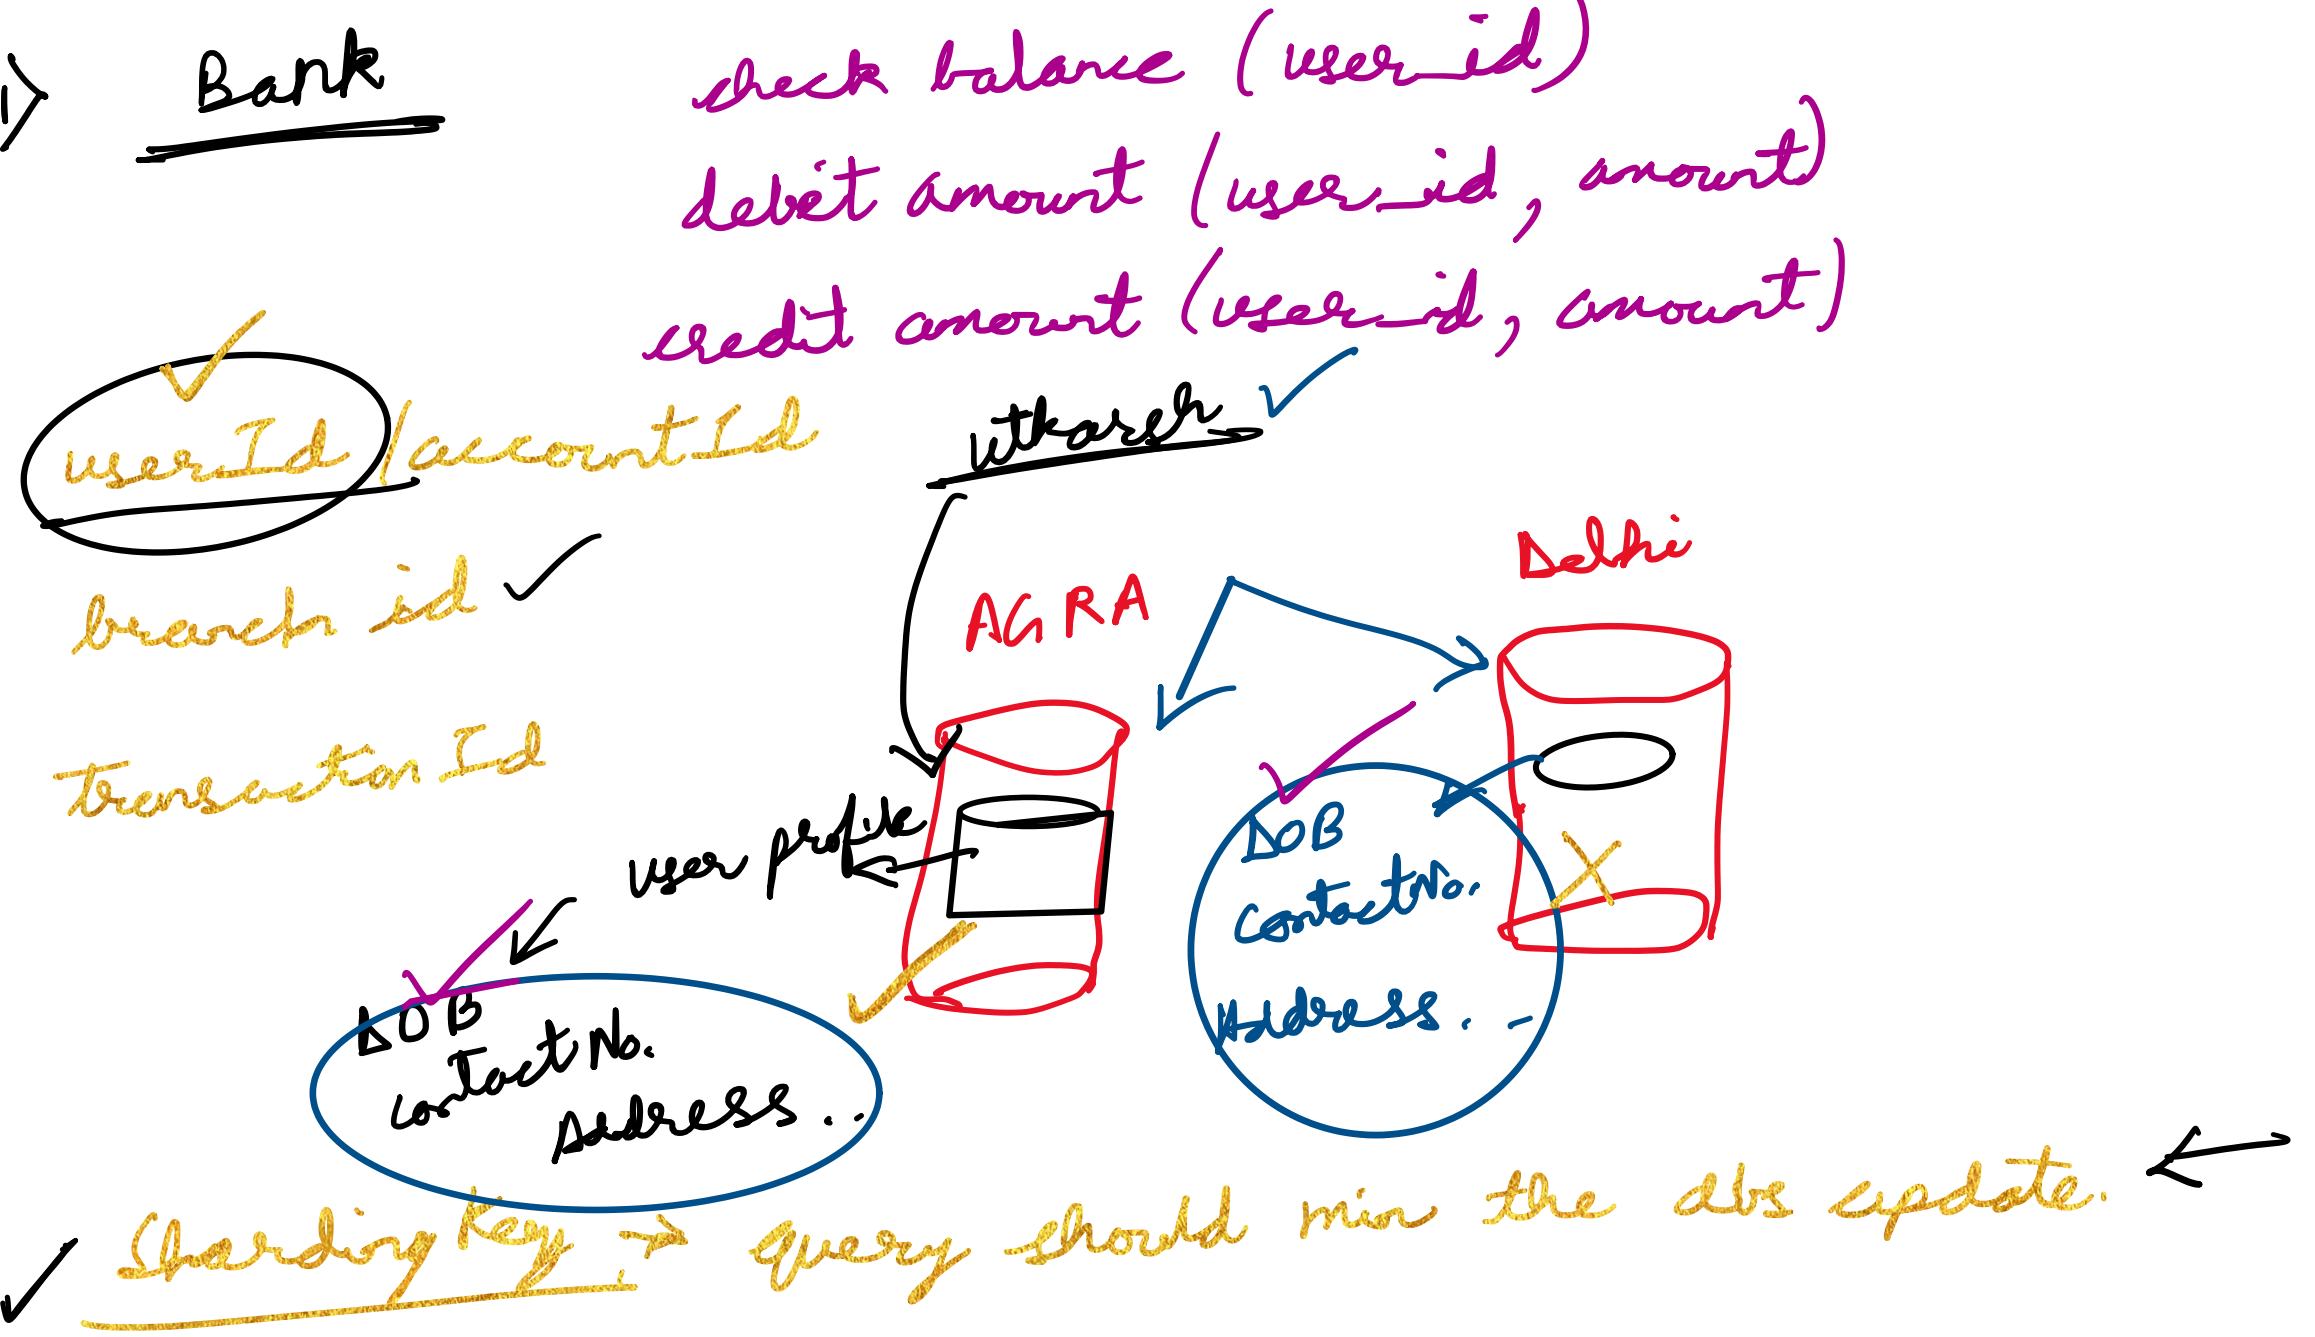 1) Bank
check balance (user_id)
debit amount (user_id, amount)
credit amount (user_id, amount)
userId/accountId
utkarsh
branch id
AGRA
Delhi
transactionId
user profile
DOB
contact No.
Address...
DOB
contact No.
Address..
Sharding Key → query should min the dbs update.